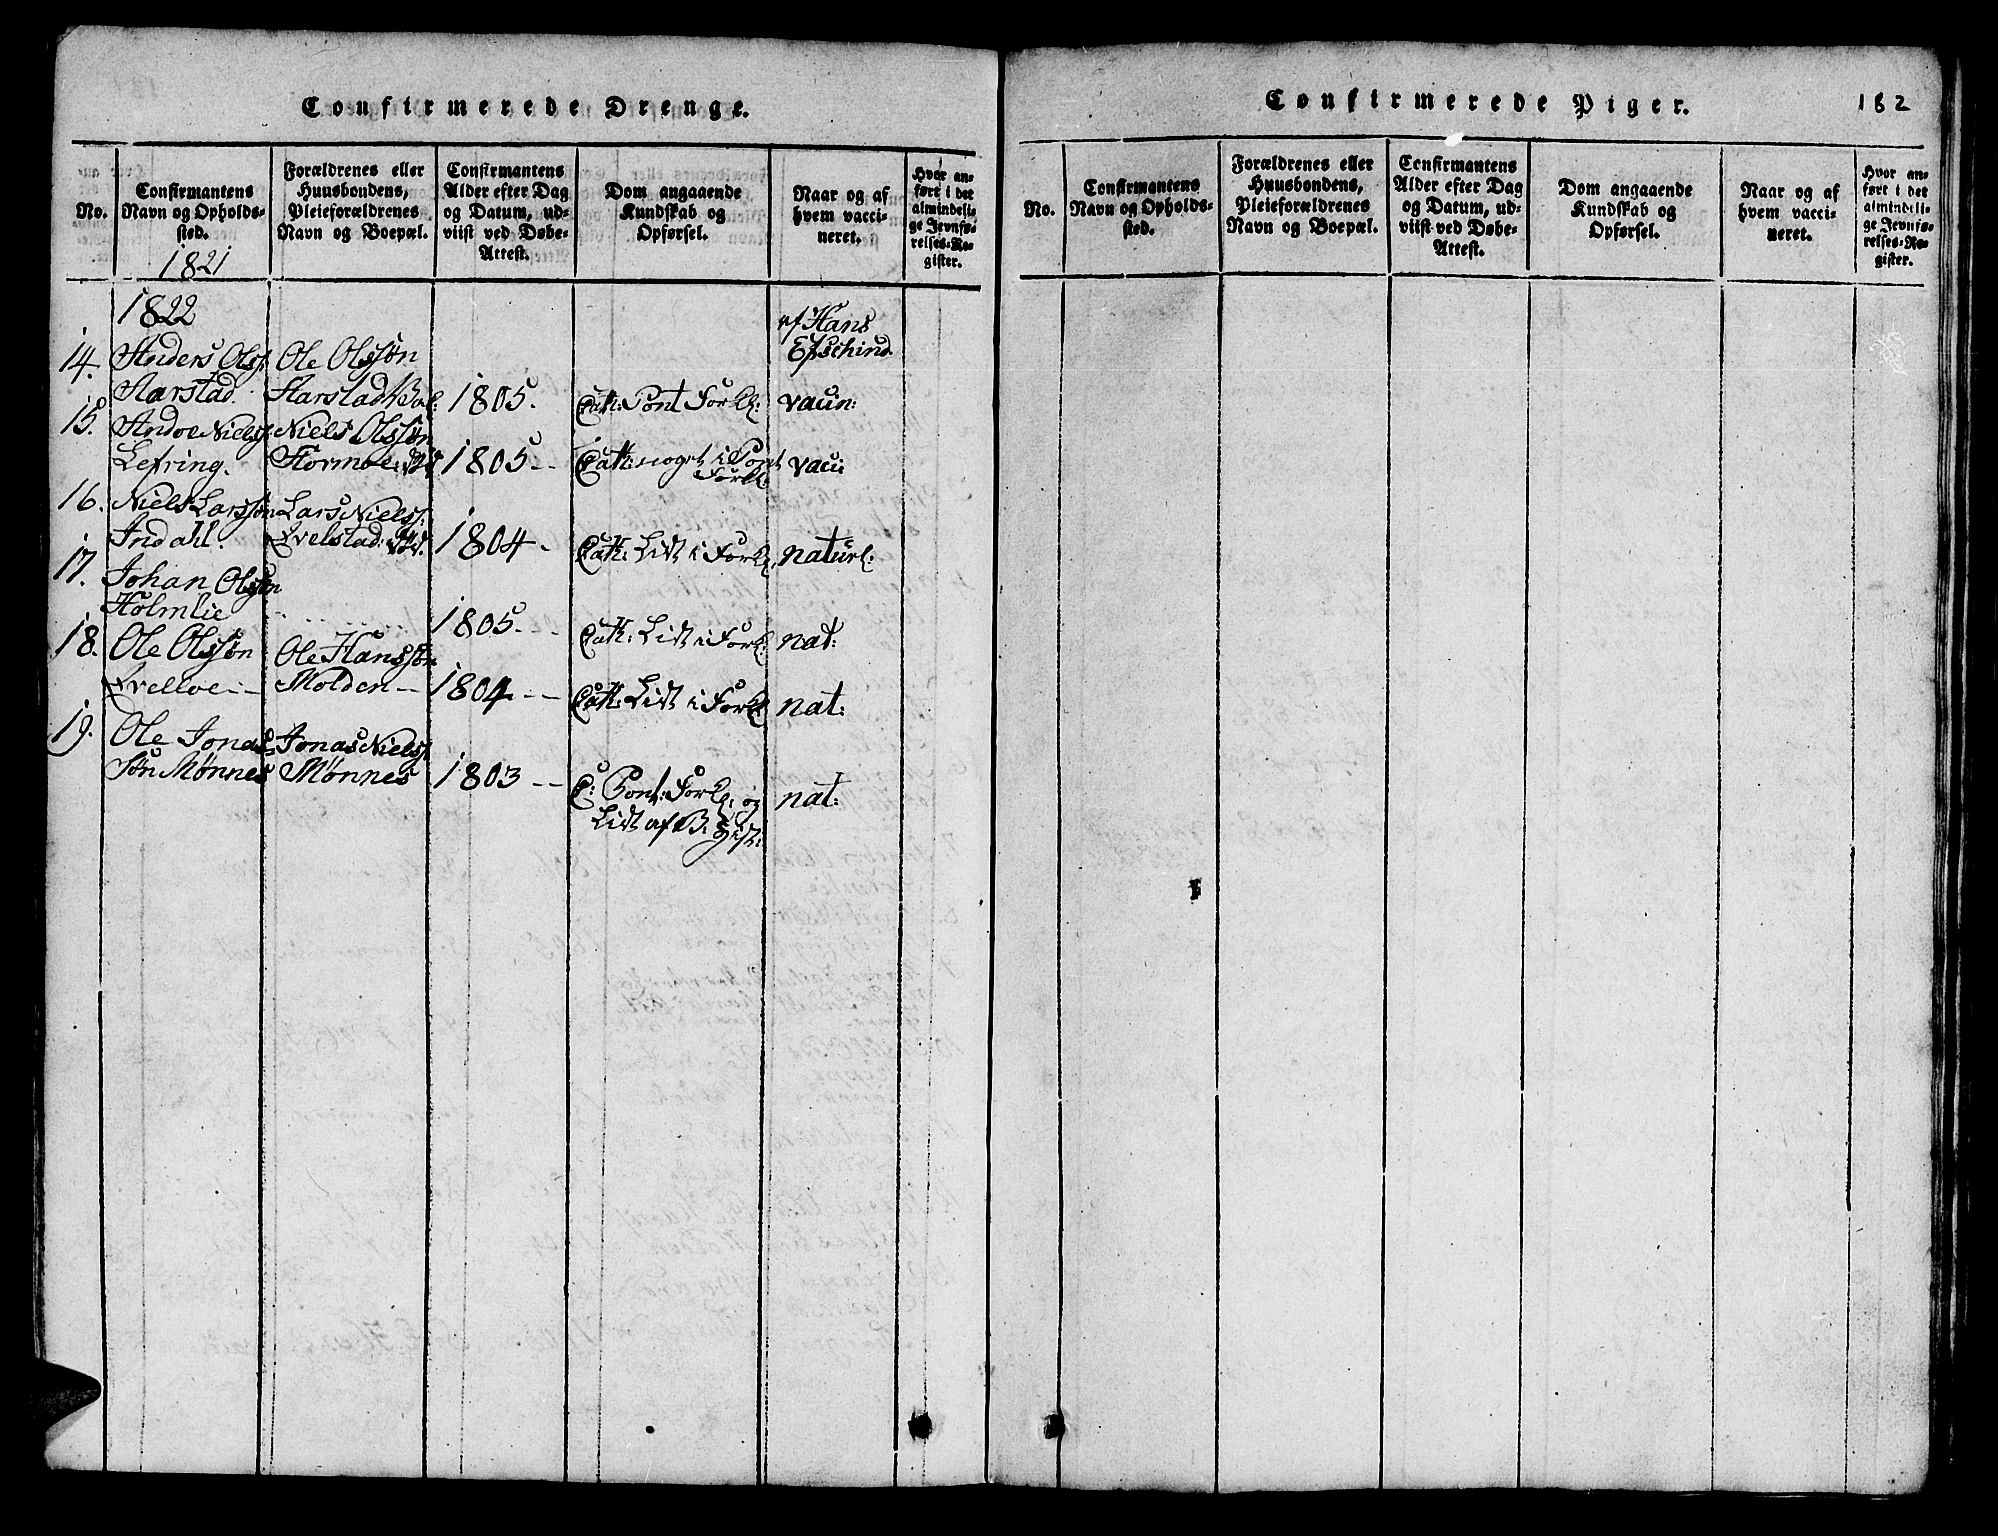 Confirmerede Drenge.
No.
Confirmantens
Navn og Opholds-
sted.
1821
Forældrenes eller
Huusbondens,
Pleieforældrenes
Navn og Boepæl.
Confirmantens
Alder efter Dag
og Datum, ud-
viist ved Døbe-
Attest.
Dom angaaende
Kundskab og
Opførsel.
Naar og af
hvem vacci-
neret.
Hvor an-
ført i det
almindeli-
ge Jevnfø-
relses-Re-
gister.
1822
af Hans
14. Anders Olss: Ole Olssøn
Harstad. Harstad 1805. Cath: Pont Forkl: vacin:
15. Andve Nielss: Niels Olssøn
Lefring. 1805-- Cath: noget i Pont vaci:
Forkl:
16. Niels Larssøn Lars Nielss:
Indahl. Qvelstad 1804- Cath: Lidt i Forkl. naturl:
17. Johan Olssøn
Holmlie 1805-- Cath: Lidt i Forkl: nat:
18. Ole Olssøn Ole Hanssøn
Molden-- 1804-- Cath: Lidt i Forkl: nat:
19. Ole Jonas- Jonas Nielss:
søn Mønnes Mønnes 1803-- C: Pont: Forkl: og nat:
Lidt af B: Hist:
Confirmerede Piger.
182
No.
Confirmantens
Navn og Opholds-
sted.
Forældrenes eller
Huusbondens,
Pleieforældrenes
Navn og Boepæl.
Confirmantens
Alder efter Dag
og Datum, ud-
viist ved Døbe-
Attest.
Dom angaaende
Kundskab og
Opførsel.
Naar og af
hvem vacci-
neret.
Hvor an-
ført i det
almindeli-
ge Jevnfø-
relses-Re-
gister.